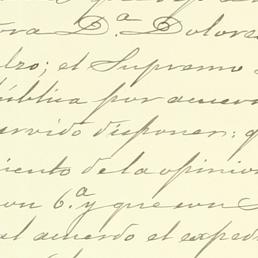 ora D.ª Dolores
dro; el Supremo
ública por acuer
ervido disponer: q
iento de la opinion
on 6.ª y que con
al acuerdo el exped